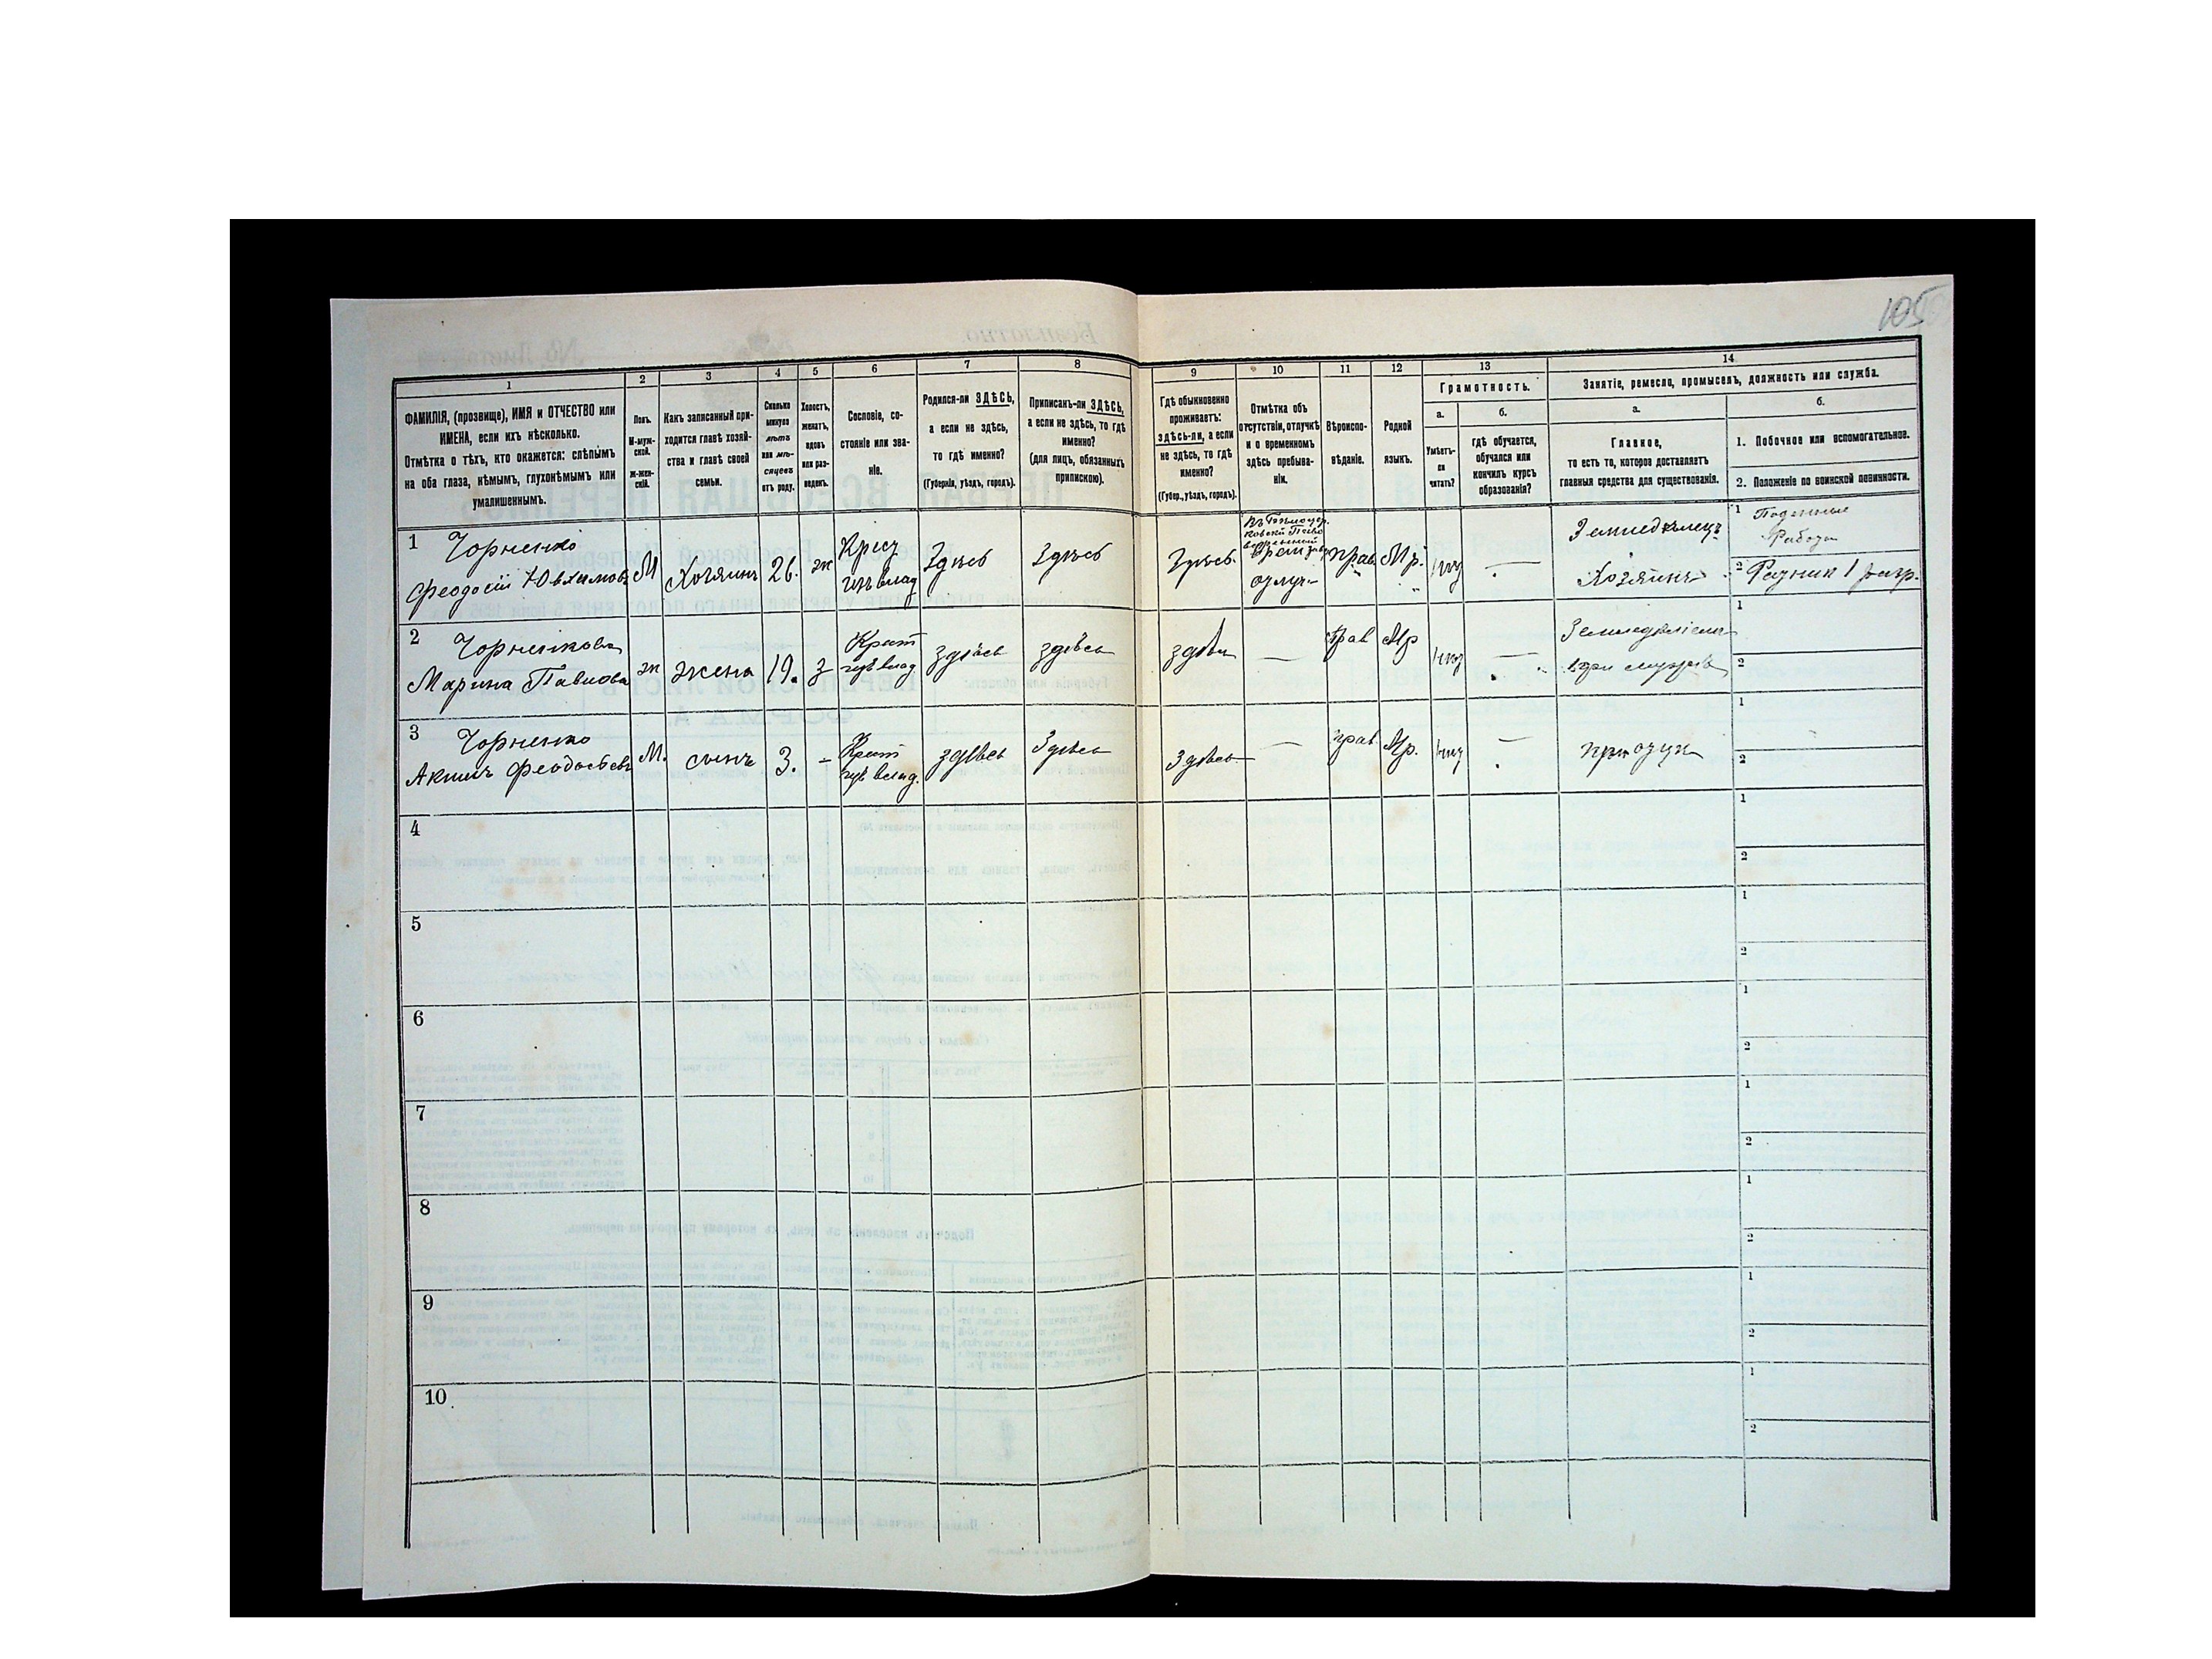 105
1
2
3
4
5
6
7
8
9
10
11
12
13
14
ФАМИЛІЯ, (прозвище), ИМЯ и ОТЧЕСТВО или
ИМЕНА, если ихъ нѣсколько.
Отмѣтка о тѣхъ, кто окажется: слѣпымъ
на оба глаза, нѣмымъ, глухонѣмымъ или
умалишеннымъ.
Полъ.
М-муж-
ской.
Ж-жен-
скій.
Какъ записанный при-
ходится главѣ хозяй-
ства и главѣ своей
семьи.
Сколько
минуло
лѣтъ
или мѣ-
сяцевъ
отъ роду.
Холостъ,
женатъ,
вдовъ
или раз-
веденъ.
Сословіе, со-
стояніе или зва-
ніе.
Родился-ли ЗДѢСЬ,
а если не здѣсь,
то гдѣ именно?
(Губернія, уѣздъ, городъ).
Приписанъ-ли ЗДѢСЬ,
а если не здѣсь, то гдѣ
именно?
(для лицъ, обязанныхъ
припискою).
Гдѣ обыкновенно
проживаетъ:
здѣсь-ли, а если
не здѣсь, то гдѣ
именно?
(Губер., уѣздъ, городъ).
Отмѣтка объ
отсутствіи, отлучкѣ
и о временномъ
здѣсь пребыва-
ніи.
Вѣроиспо-
вѣданіе.
Родной
языкъ.
Грамотность.
а.
б.
Умѣетъ-
ли
читать?
гдѣ обучается,
обучался или
кончилъ курсъ
образованія?
Занятіе, ремесло, промыселъ, должность или служба.
а.
б.
Главное,
то есть то, которое доставляетъ
главныя средства для существованія.
1. Побочное или вспомогательное.
2. Положеніе по воинской повинности.
1 Чорненко
Феодосій Ювхимовъ
М
Хозяинъ
26.
ж
Здѣсь
Здѣсь
Здѣсь
прав
Мр.
Земледѣлецъ
Хозяинъ
1 Поденные
Работы
2 Ратник 1 разр.
2 Чорненкова
Марина Павлова
ж
жена
19.
з
Крест
здѣсь
здѣсь
здѣсь
—
прав
Мр
—
при мужѣ
1
2
3 Чорненко
Аким Феодосіевъ
М.
сынъ
3.
-
Крест
здѣсь
Здѣсь
Здѣсь
—
прав
Мр.
—
при отцѣ
1
2
4
1
2
5
1
2
6
1
2
7
1
2
8
1
2
9
1
2
10
1
2